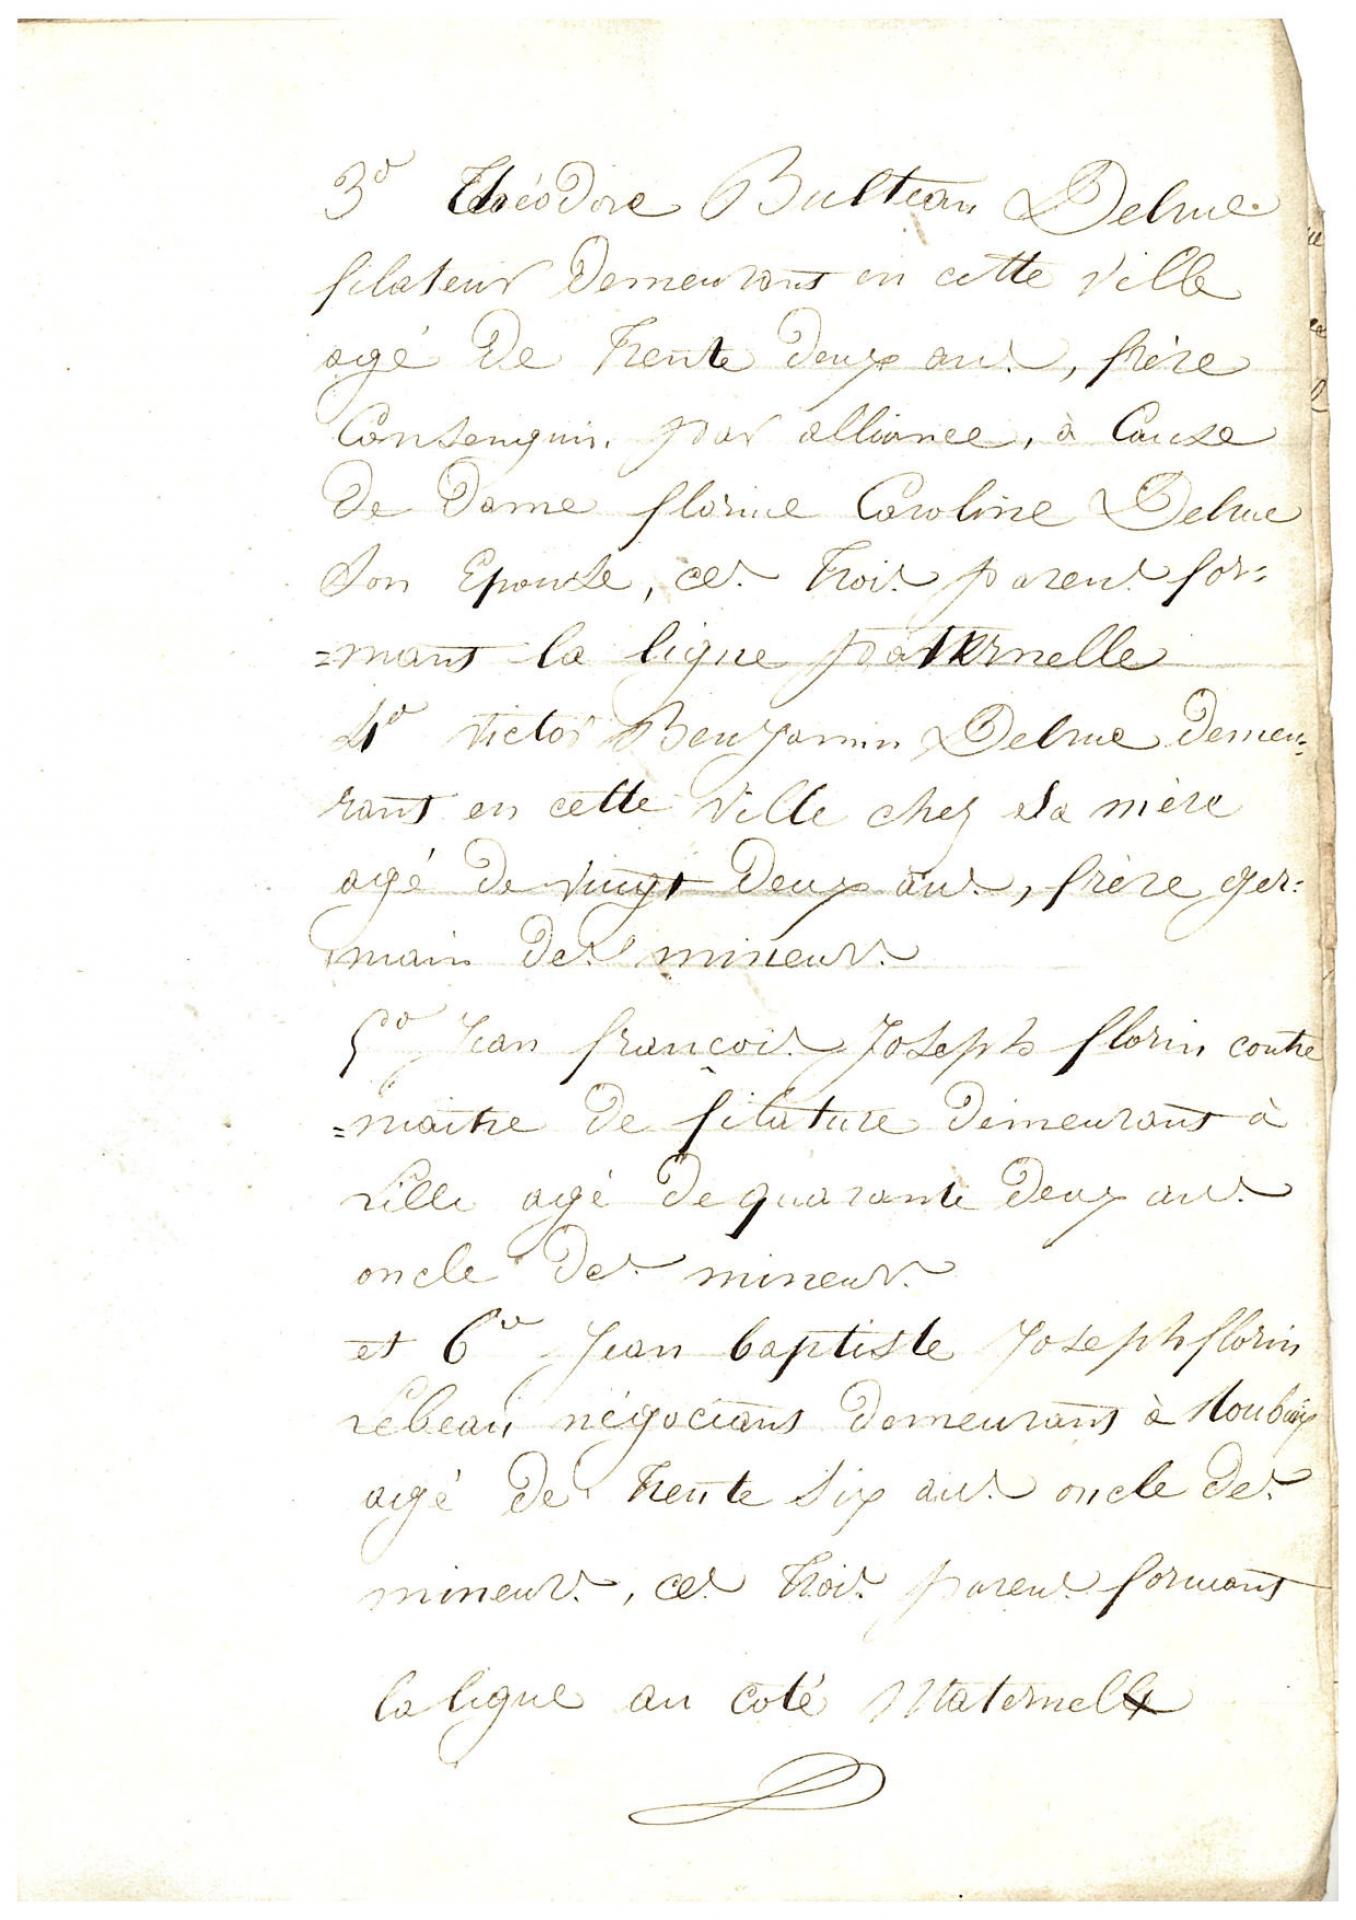 3° Théodore Bulteau Delrue
filateur demeurant en cette ville
agé de trente deux ans, frère
Consenguin par alliance, à Cause
de Dame florine Caroline Delrue
son Epouse, ces trois parens for=
=mant la ligne paternelle
4° victor Benjamin Delrue demeu=
rant en cette ville chez sa mère
agé de vingt deux ans, frère ger=
main des mineurs.
5° Jean francois Joseph florin contre
=maitre de filature demeurant à
Lille agé de quarante deux ans
oncle des mineurs.
et 6° Jean baptiste Joseph florin
Lebeau négociant demeurant à Roubaix
agé de trente six ans oncle des
mineurs, ces trois parens formant
la ligne au coté Maternel